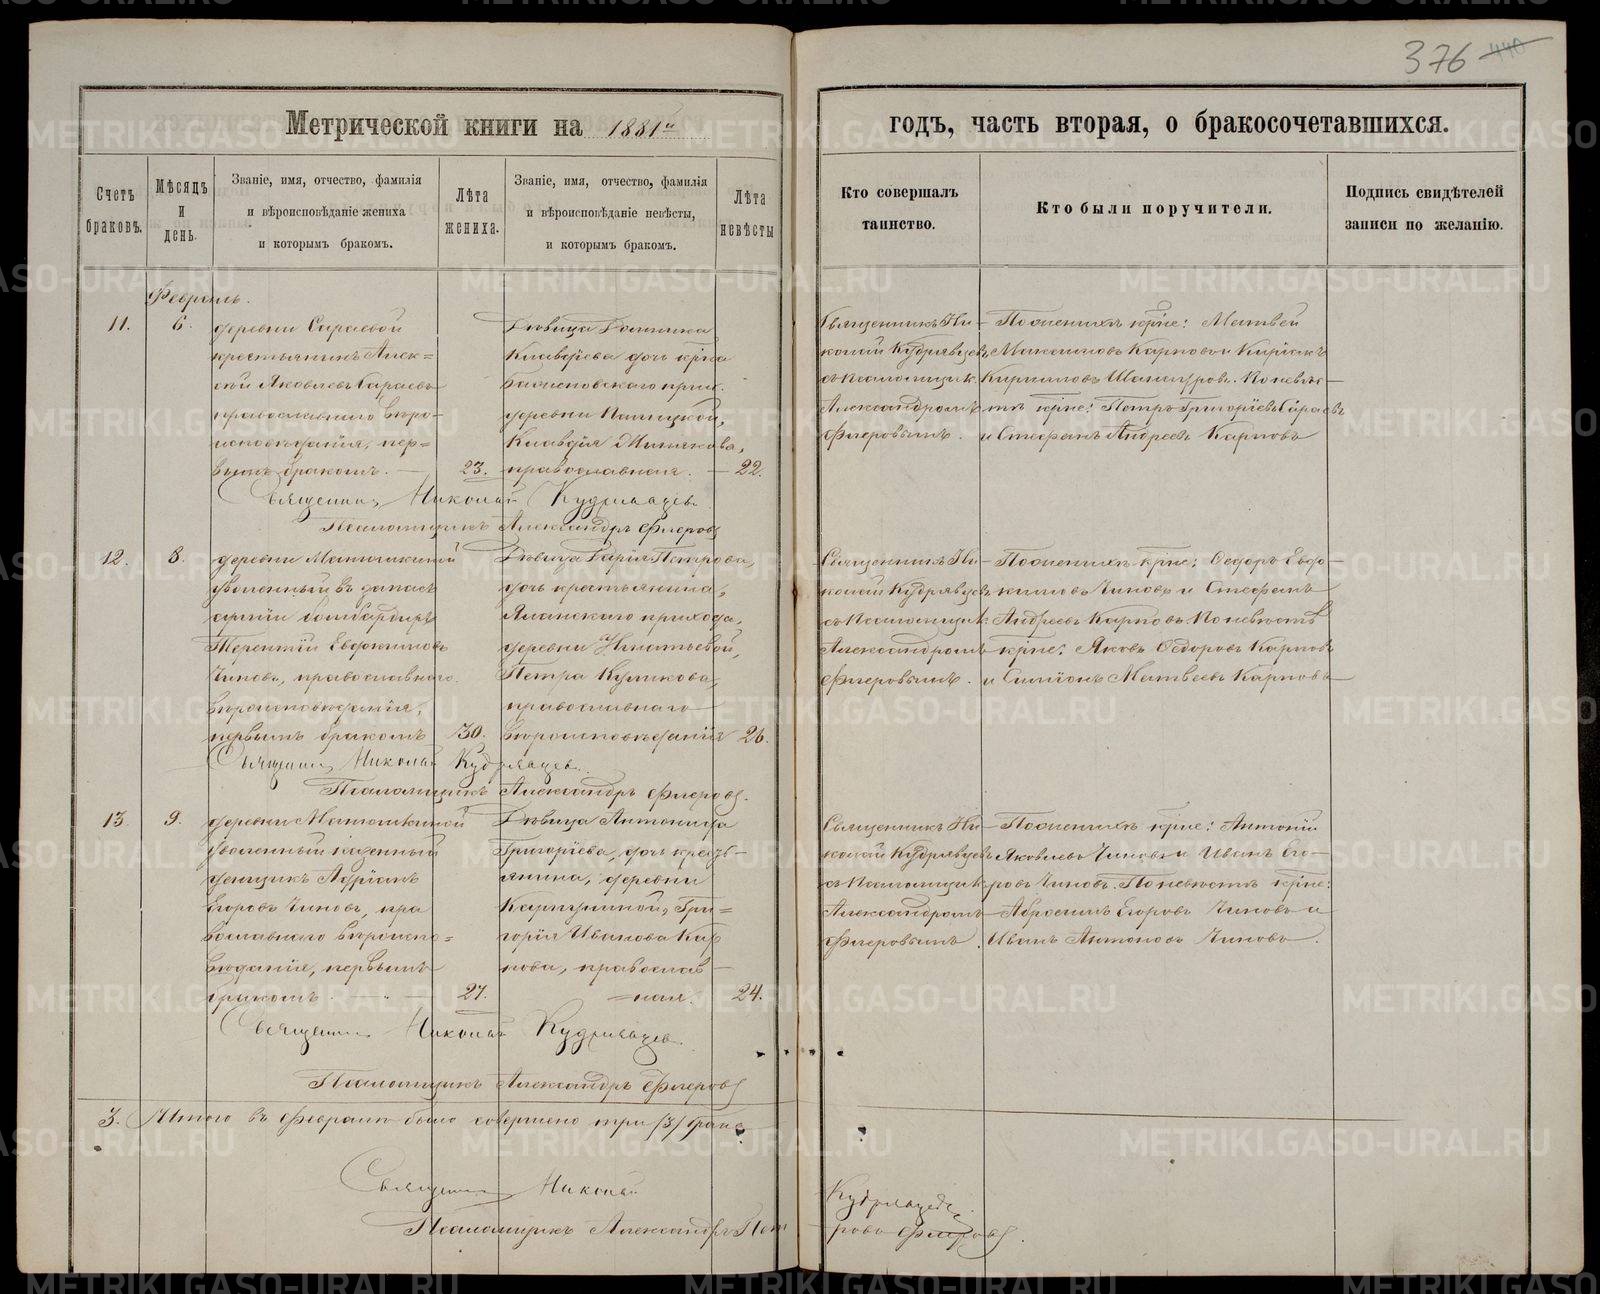 376 440
Метрической книги на 1881й
годъ, часть вторая, о бракосочетавшихся.
Счетъ браковъ.
Мѣсяцъ и день.
Званіе, имя, отчество, фамилія
и вѣроисповѣданіе жениха
и которымъ бракомъ.
Лѣта жениха.
Званіе, имя, отчество, фамилія
и вѣроисповѣданіе невѣсты,
и которымъ бракомъ.
Лѣта невѣсты
Кто совершалъ
таинство.
Кто были поручители.
Подпись свидѣтелей
записи по желанію.
Февраль.
11.
6.
деревни Сараевой
крестьянинъ Алек=
сѣй Яковлевъ Сараевъ
православнаго вѣро-
исповѣданія, пер=
вымъ бракомъ.
23.
Дѣвица
Клавдіева дочь крна
прих.
деревни
Клавдія
православная.
22.
Священникъ Ни-
колай Кудрявцевъ
съ Псаломщик.
Александромъ
Флеровымъ.
По женихѣ крне: Матвей
Максимовъ Карповъ и Киріакъ
Кириловъ По невѣс-
тѣ крне: Петръ Григорiевъ Сараевъ
и Стефанъ Андреевъ Карповъ
Священникъ Николай Кудрявцевъ
Псаломщикъ Александръ Флеровъ
12.
8.
деревни
уволенный въ запасъ
арміи бомбардиръ
Терентій Евдокимовъ
Чиновъ, православнаго
вѣроисповѣданія,
первымъ бракомъ
30.
Дѣвица Дарія Петрова,
дочь крестьянина,
прихода,
деревни Игнатьевой,
Петра Куликова,
православнаго
вѣроисповѣданія
26.
Священникъ Ни-
колай Кудрявцевъ
съ Псаломщик.
Александромъ
Флеровымъ.
По женихѣ крне: Федоръ Евдо-
кимовъ Чиновъ и Стефанъ
Андреевъ Карповъ. По невѣстѣ
крне: Яковъ Федоровъ Карповъ
и Симеонъ Матвеевъ Карповъ
Священникъ Николай Кудрявцевъ.
Псаломщикъ Александръ Флеровъ.
13.
9.
деревни
уволенный казенный
денщикъ Адріанъ
Егоровъ Чиновъ, пра
вославнаго вѣроиспо=
вѣданія, первымъ
бракомъ.
27.
Дѣвица Антонида
Григоріева, дочь кресть-
янина, деревни
Гри=
горія Иванова Кар
пова, православ-
=ная.
24.
Священникъ Ни-
колай Кудрявцевъ
съ Псаломщик.
Александромъ
Флеровымъ.
По женихѣ крне: Антоній
Яковлевъ Чиновъ и Иванъ Его-
ровъ Чиновъ. По невѣстѣ крне:
Абросимъ Егоровъ Чиновъ и
Иванъ Антоновъ Чиновъ.
Священникъ Николай Кудрявцевъ.
Псаломщикъ Александръ Флеровъ
3. Итого въ февралѣ было совершено три /3/ брака
Священникъ Николай Кудрявцевъ.
Псаломщикъ Александръ Пет ровъ Флеровъ.
METRIKI.GASO-URAL.RU